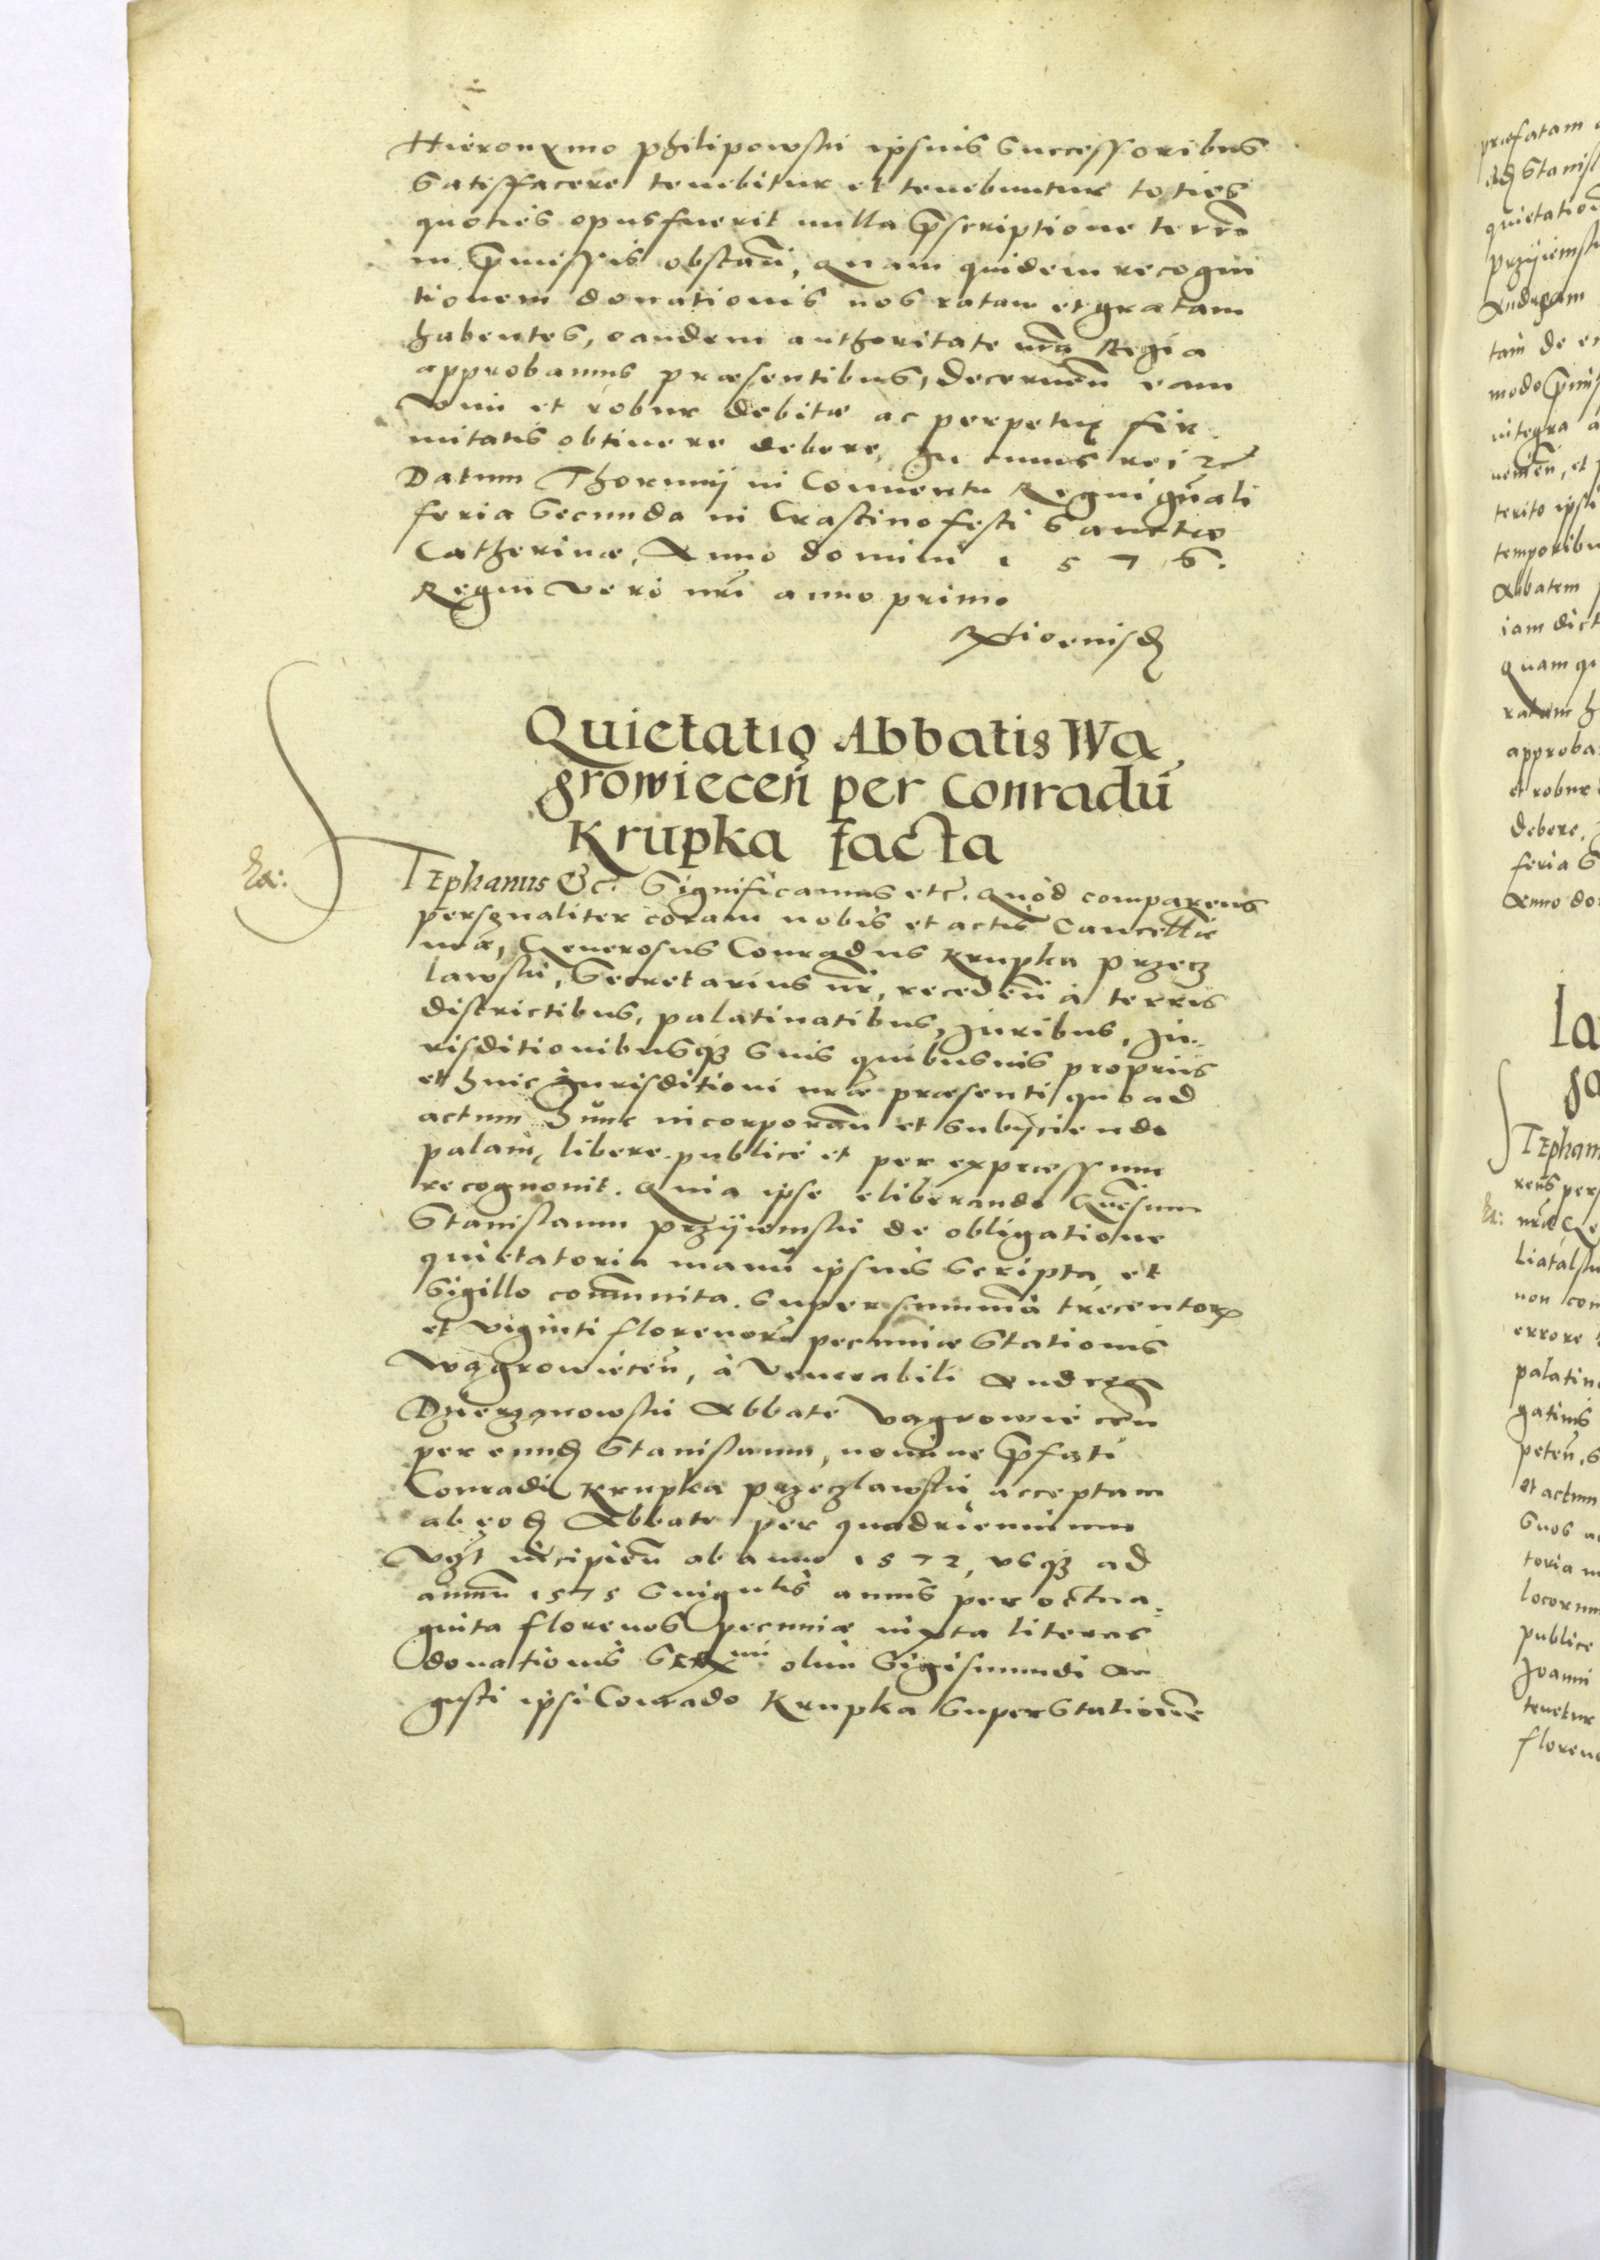 Hieronymo Philipowski ipsius successoribus
satisfacere tenebitur et tenebuntur toties
quoties opus fuerit nulla p̄scriptione terrẽ
in p̄missis obstañ, Quam quidem recogni
tionem donationis nos ratam et gratam
habentes, eandem authoritate nr̃a Regia
approbamus præsentibus, decerneñ eam
vim et robur debitæ ac perpetuæ fir
mitatis obtinere debere, In cuius rei etc̃
Datum Thorunij in Conuentu Regni gñali
feria secunda in Crastino festi Sanctæ
Catherinæ, Anno domini 1 5 7 6.
Regni vero nr̃i anno primo
Quietatio Abbatis Wa
growieceñ per Conradũ
Krupka facta
STephanus &c. Significamus etc. Quod comparens
personaliter coram nobis et actis Cancellariæ
nr̃æ, Generosus Conradus Krupka Przecz
lawski, Secretarius nr̃, recedeñ à terris
districtibus, palatinatibus, Iuribus, Iu-
risditionibusq3 suis quibusuis propriis
et huic Iurisditioni nr̃æ præsenti, quo ad
actum hunc incorporañ et subijciendo
palam, libere publicé et per expressum
recognouit. Quia ipse eliberando Gñosum
Stanislaum Przyiemski de obligatione
quietatoria manu ipsius scripta et
sigillo com̃unita. super summa trecentorꝝ
et viginti florenorũ pecuniæ Stationis
Wągrowieceñ, à Venerabili Andrea
Dzierzanowski Abbate Vagrowieceñ
per eund̃ Stanislaum, nomine p̄fati
Conradi Krupka Przeczlawski acceptam
ab eod̃ Abbate per quadriennium
vz̃t incipieñ ab anno 1572, vsq3 ad
annũ 1575 singulis annis per octua-
ginta florenos pecuniæ iuxta literas
donationis Serᵐⁱ olim Sigismundi Au
gusti ipsi Conrado Krupka super Stationẽ
Ra:
præfatam
quietation
Przyiemski
Andream
tam de e
modo p̄mis
integra a
temporibu
Abbatem
iam dict
Quam qu
ratam h
approba
et robur
debere.
feria S
Anno do
STephan
non com
errore
palatin
et actum
suos a
toria m
locorum
publice
Joanni
tenetur
floren